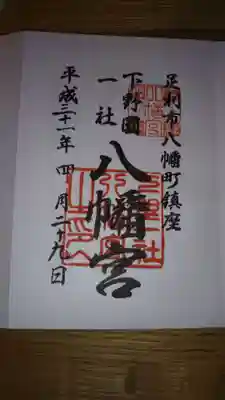 足利市八幡町鎮座
下野國
一社
八幡宮
平成三十一年四月二十九日